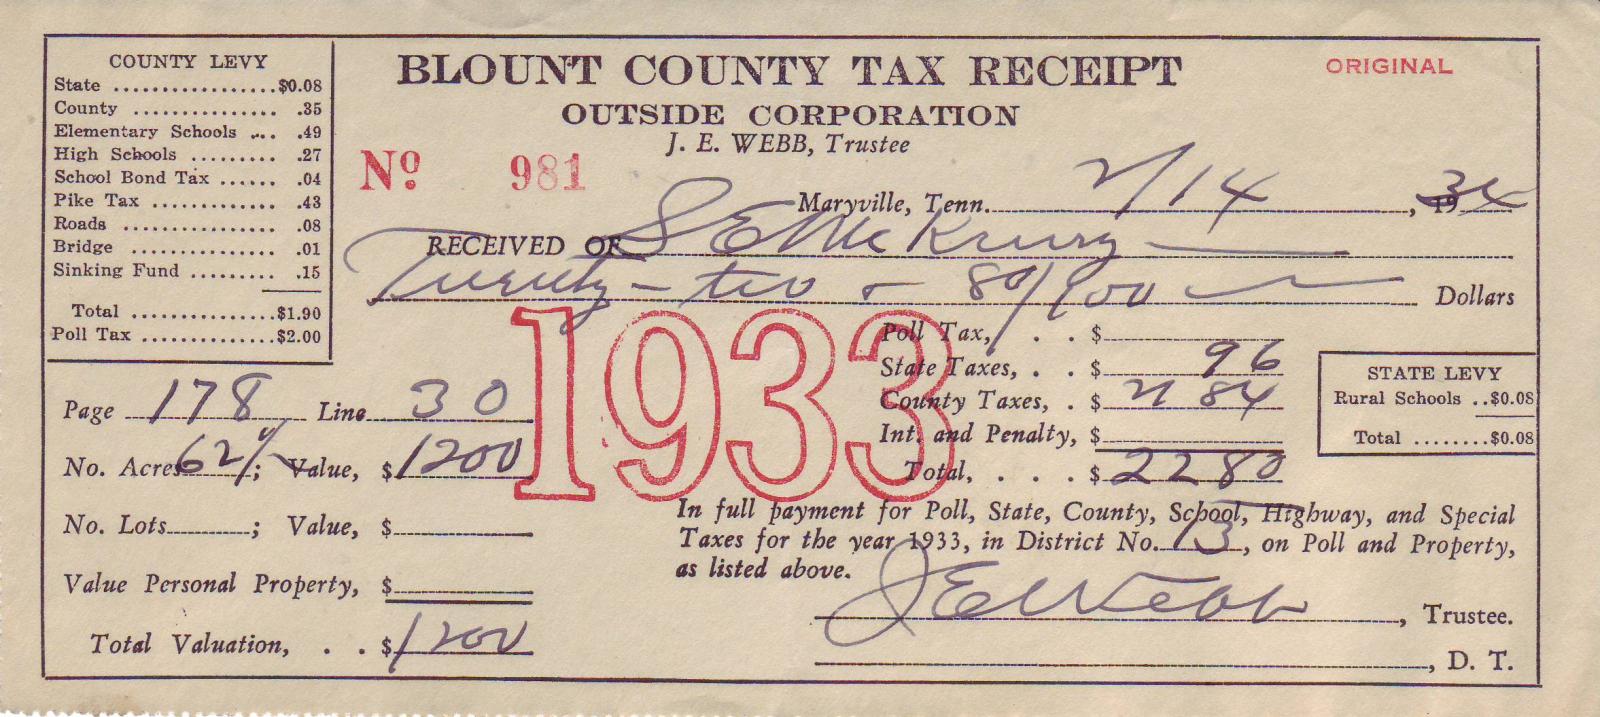 COUNTY LEVY
State ................$0.08
County .............. .35
Elementary Schools ... .49
High Schools ......... .27
School Bond Tax ...... .04
Pike Tax ............. .43
Roads ................ .08
Bridge ............... .01
Sinking Fund ......... .15
Total ...............$1.90
Poll Tax ..............$2.00
BLOUNT COUNTY TAX RECEIPT
ORIGINAL
OUTSIDE CORPORATION
J. E. WEBB, Trustee
No. 981
Maryville, Tenn. 2/14, 1934
RECEIVED OF S E Mc
Twenty-two + 80/100 Dollars
1933
Poll Tax, . . $
State Taxes, . . $ 96
County Taxes, . $ 21 84
Int. and Penalty, $
Total, . . . $ 22 80
STATE LEVY
Rural Schools ..$0.08
Total ........$0.08
Page 178 Line 30
No. Acres 62; Value, $1200
No. Lots ; Value, $
Value Personal Property, $
Total Valuation, . . $1200
In full payment for Poll, State, County, School, Highway, and Special
Taxes for the year 1933, in District No. 13, on Poll and Property,
as listed above.
J E Webb, Trustee.
, D. T.